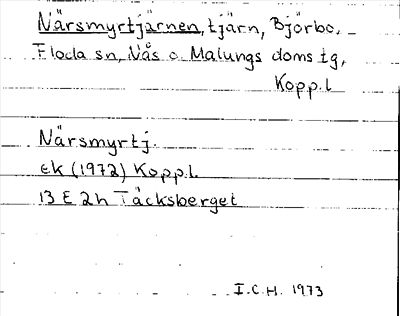 Närsmyrtjärnen, tjärn, Björbo,
Floda sn, Nås o. Malungs doms tg,
Kopp. l
Närsmyrtj.
ek (1972) Kopp. l.
13 E 2h Täcksberget
I.C.H. 1973